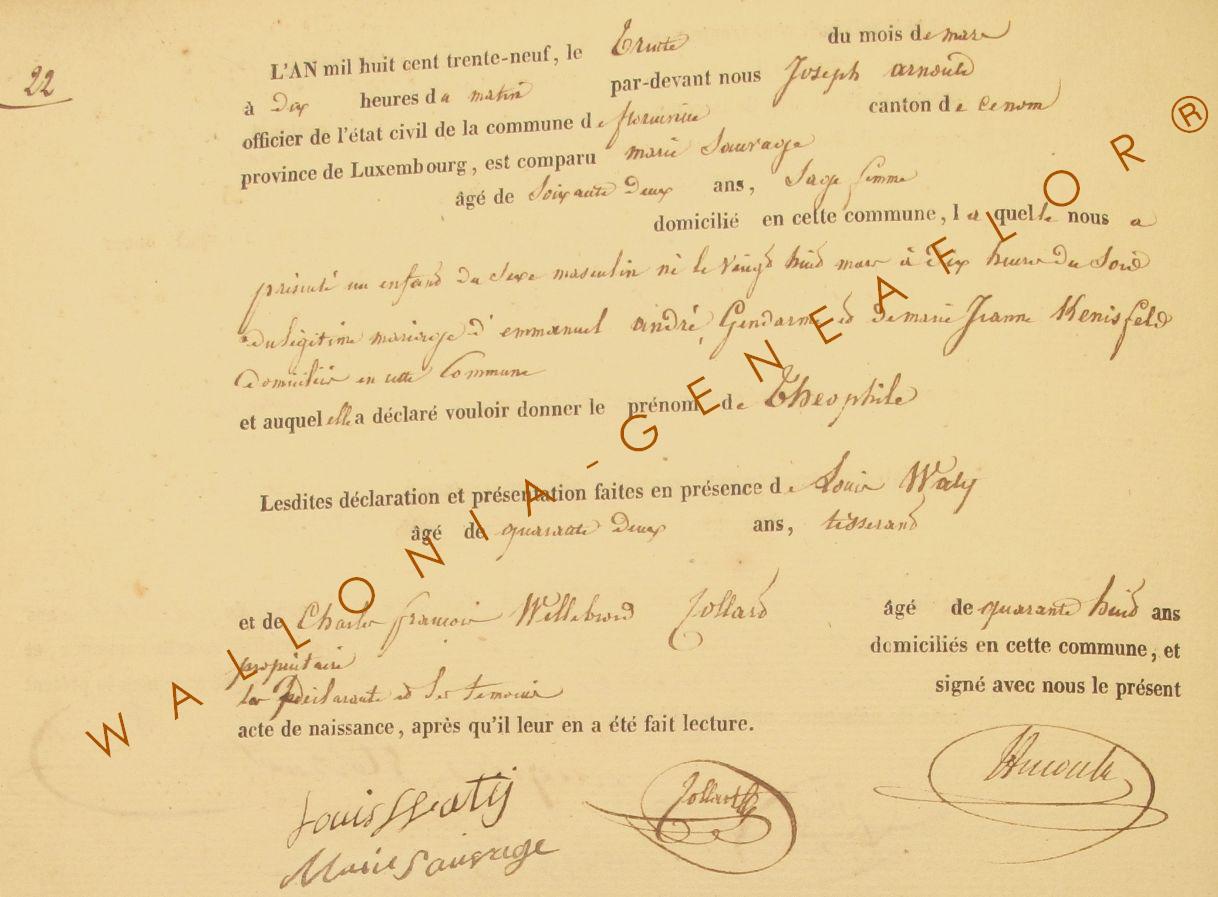 22
L'AN mil huit cent trente-neuf, le Trente du mois de mars
à dix heures du matin par-devant nous Joseph arnould
officier de l'état civil de la commune de florenville canton de
province de Luxembourg, est comparu marie Sauvage
âgé de Soixante Deux ans, Sage femme
domicilié en cette commune, laquelle nous a
présenté un enfant du Sexe masculin né le vingt huit mars à dix heures du Soir
du légitime mariage d'emmanuel andré, Gendarme et de marie Jeanne Kenisfeld
Domiciliés en cette Commune
et auquel elle a déclaré vouloir donner le prénom de Théophile
Lesdites déclaration et présentation faites en présence de Louis Waty
âgé de quarante Deux ans, tisserand
et de Charles françois Willebrord Jollard âgé de quarante huit ans
propriétaire domiciliés en cette commune, et
la déclarante et les témoins signé avec nous le présent
acte de naissance, après qu'il leur en a été fait lecture.
Louis Waty Jollard Arnould
Marie Sauvage
WALLONIA-GENEAFLOR ®